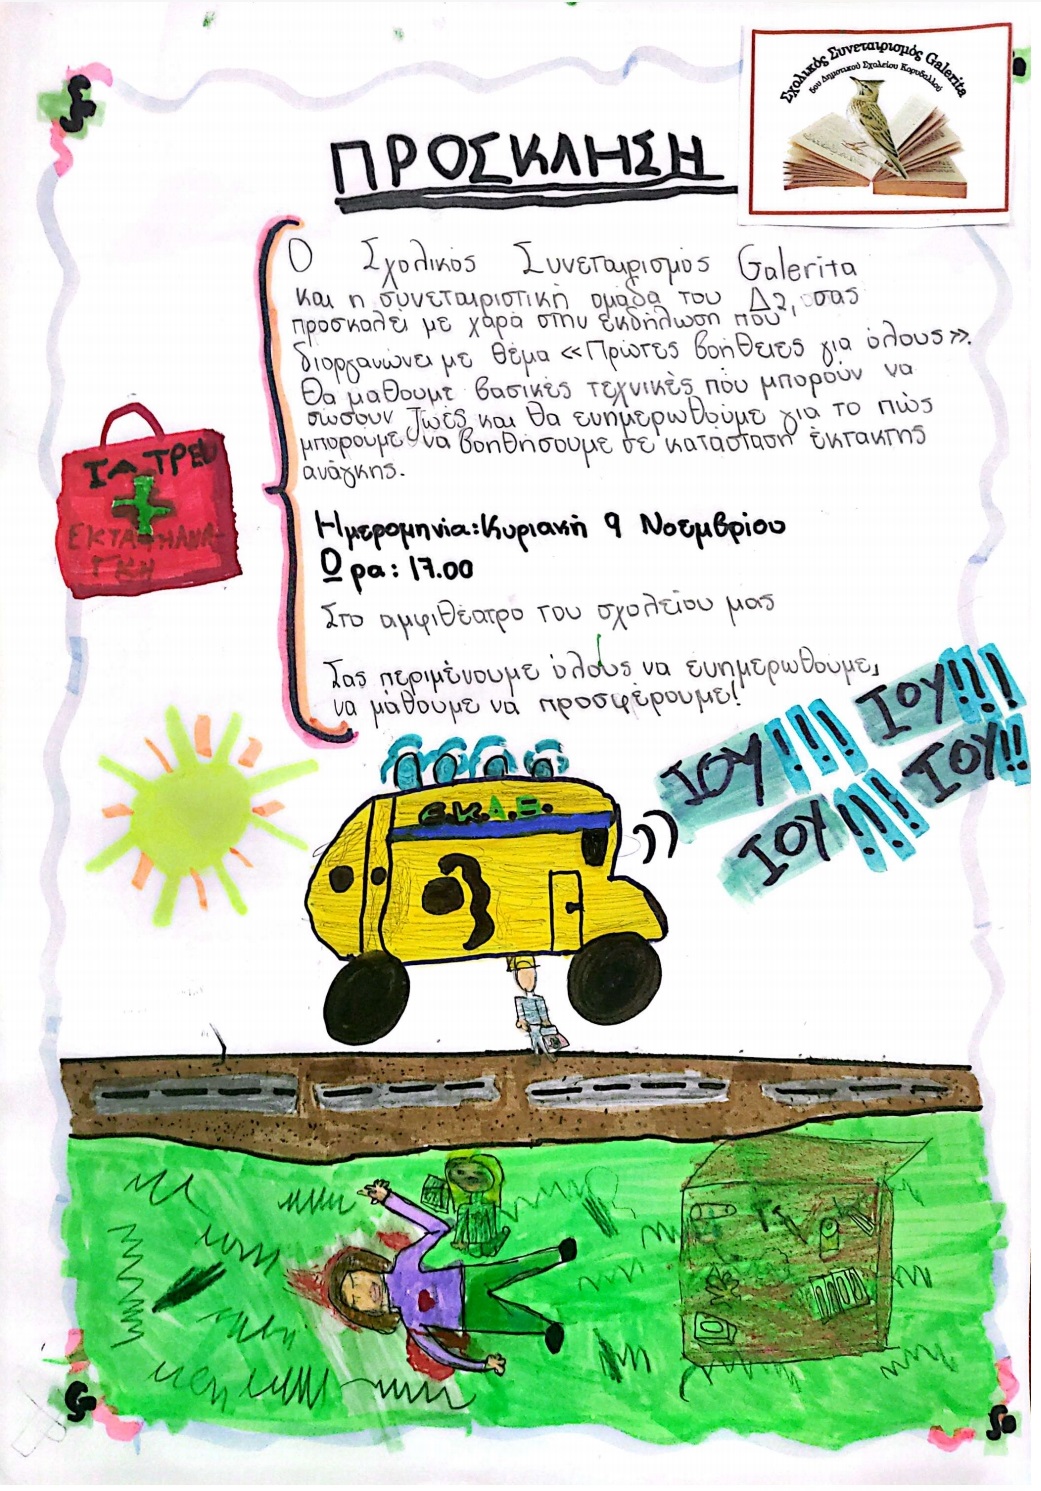 Σχολικός Συνεταιρισμός Galerita
5ου Δημοτικού Σχολείου Κορυδαλλού
ΠΡΟΣΚΛΗΣΗ
Ο Σχολικός Συνεταιρισμός Galerita
και η συνεταιριστική ομάδα του Δ2, σας
προσκαλεί με χαρά στην εκδήλωση που
διοργανώνει με θέμα «Πρώτες βοήθειες για όλους».
Θα μάθουμε βασικές τεχνικές που μπορούν να
σώσουν ζωές και θα ενημερωθούμε για το πώς
μπορούμε να βοηθήσουμε σε κατάσταση έκτακτης
ανάγκης.
Ημερομηνία: Κυριακή 9 Νοεμβρίου
Ώρα: 17.00
Στο αμφιθέατρο του σχολείου μας
Σας περιμένουμε όλους να ενημερωθούμε,
να μάθουμε να προσφέρουμε!
ΙΑΤΡΕΙ
ΙΟΥ!!! ΙΟΥ!!!
ΙΟΥ!!! ΙΟΥ!!
Ε.Κ.Α.Β.